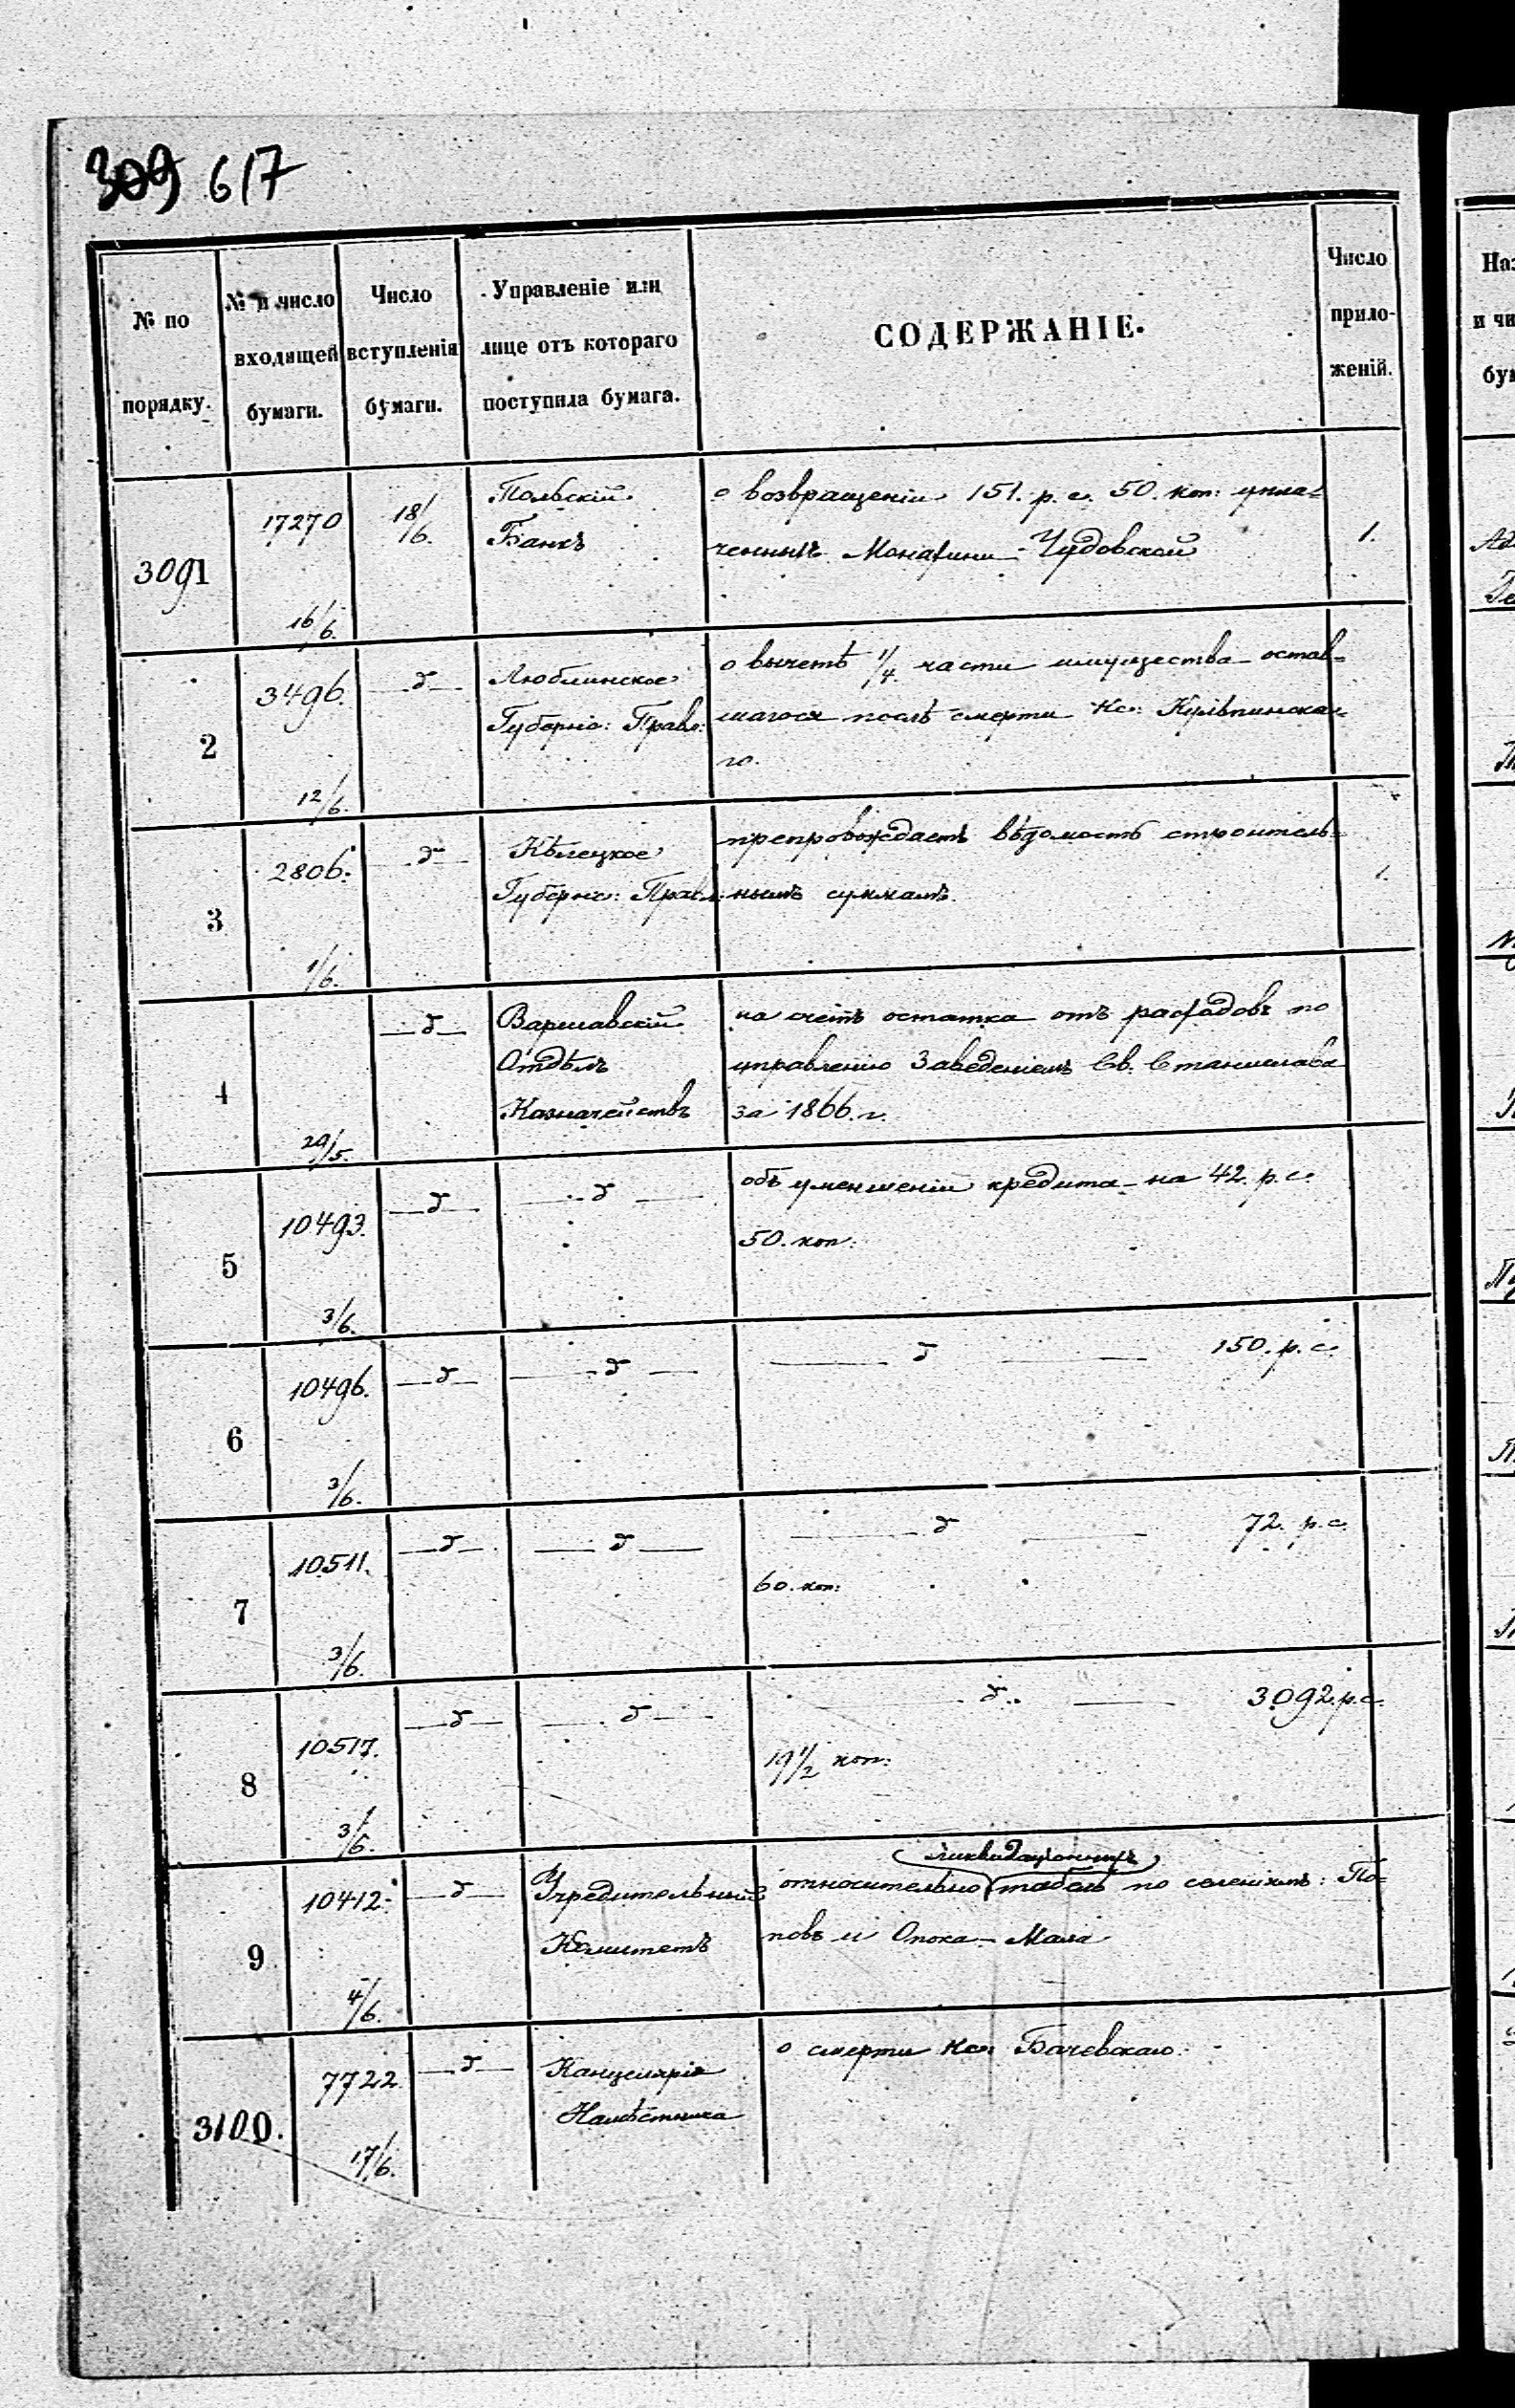 309 617
№ по порядку.
№ и число входящей бумаги.
Число вступленія бумаги.
Управленіе или лице отъ котораго поступила бумага.
СОДЕРЖАНІЕ.
Число приложеній.
3091
17270
16/6.
18/6.
Польскій
Банкъ
о возвращеніи 151. р. с. 50. коп: упла=
ченныхъ Монахини Чудовской
1.
2
3496.
12/6.
д
Люблинское
Губернс: Правл:
о вычетѣ 1/4 части имущества остав=
шагося послѣ смерти Кс: Кульпинска=
го.
3
2806.
1/6.
д
Кѣлецкое
Губернс: Правл:
препровождаетъ вѣдомость строитель=
нымъ суммамъ.
1.
4
29/5.
д
Варшавскій
Отдѣлъ
Казначействъ
на счетъ остатка отъ расходовъ по
управленію Заведеніемъ Св. Станислава
за 1866. г.
5
10493.
3/6.
д
д
объ уменшеніи кредита на 42. р. с.
50. коп:
6
10496.
3/6.
д
д
д 150. р. с.
7
10511.
3/6.
д
д
д 72. р. с.
60. коп:
8
10517.
3/6.
д
д
д 3092. р. с.
19 1/2 коп:
9
10412.
4/6.
д
Учредительный
Комитетъ
ликвидаціонныхъ
относительно табель по селеніямъ: По=
повъ и Опока-Мала
3100.
7722
17/6.
д
Канцелярія
Намѣстника
о смерти Кс: Бачевскаго.